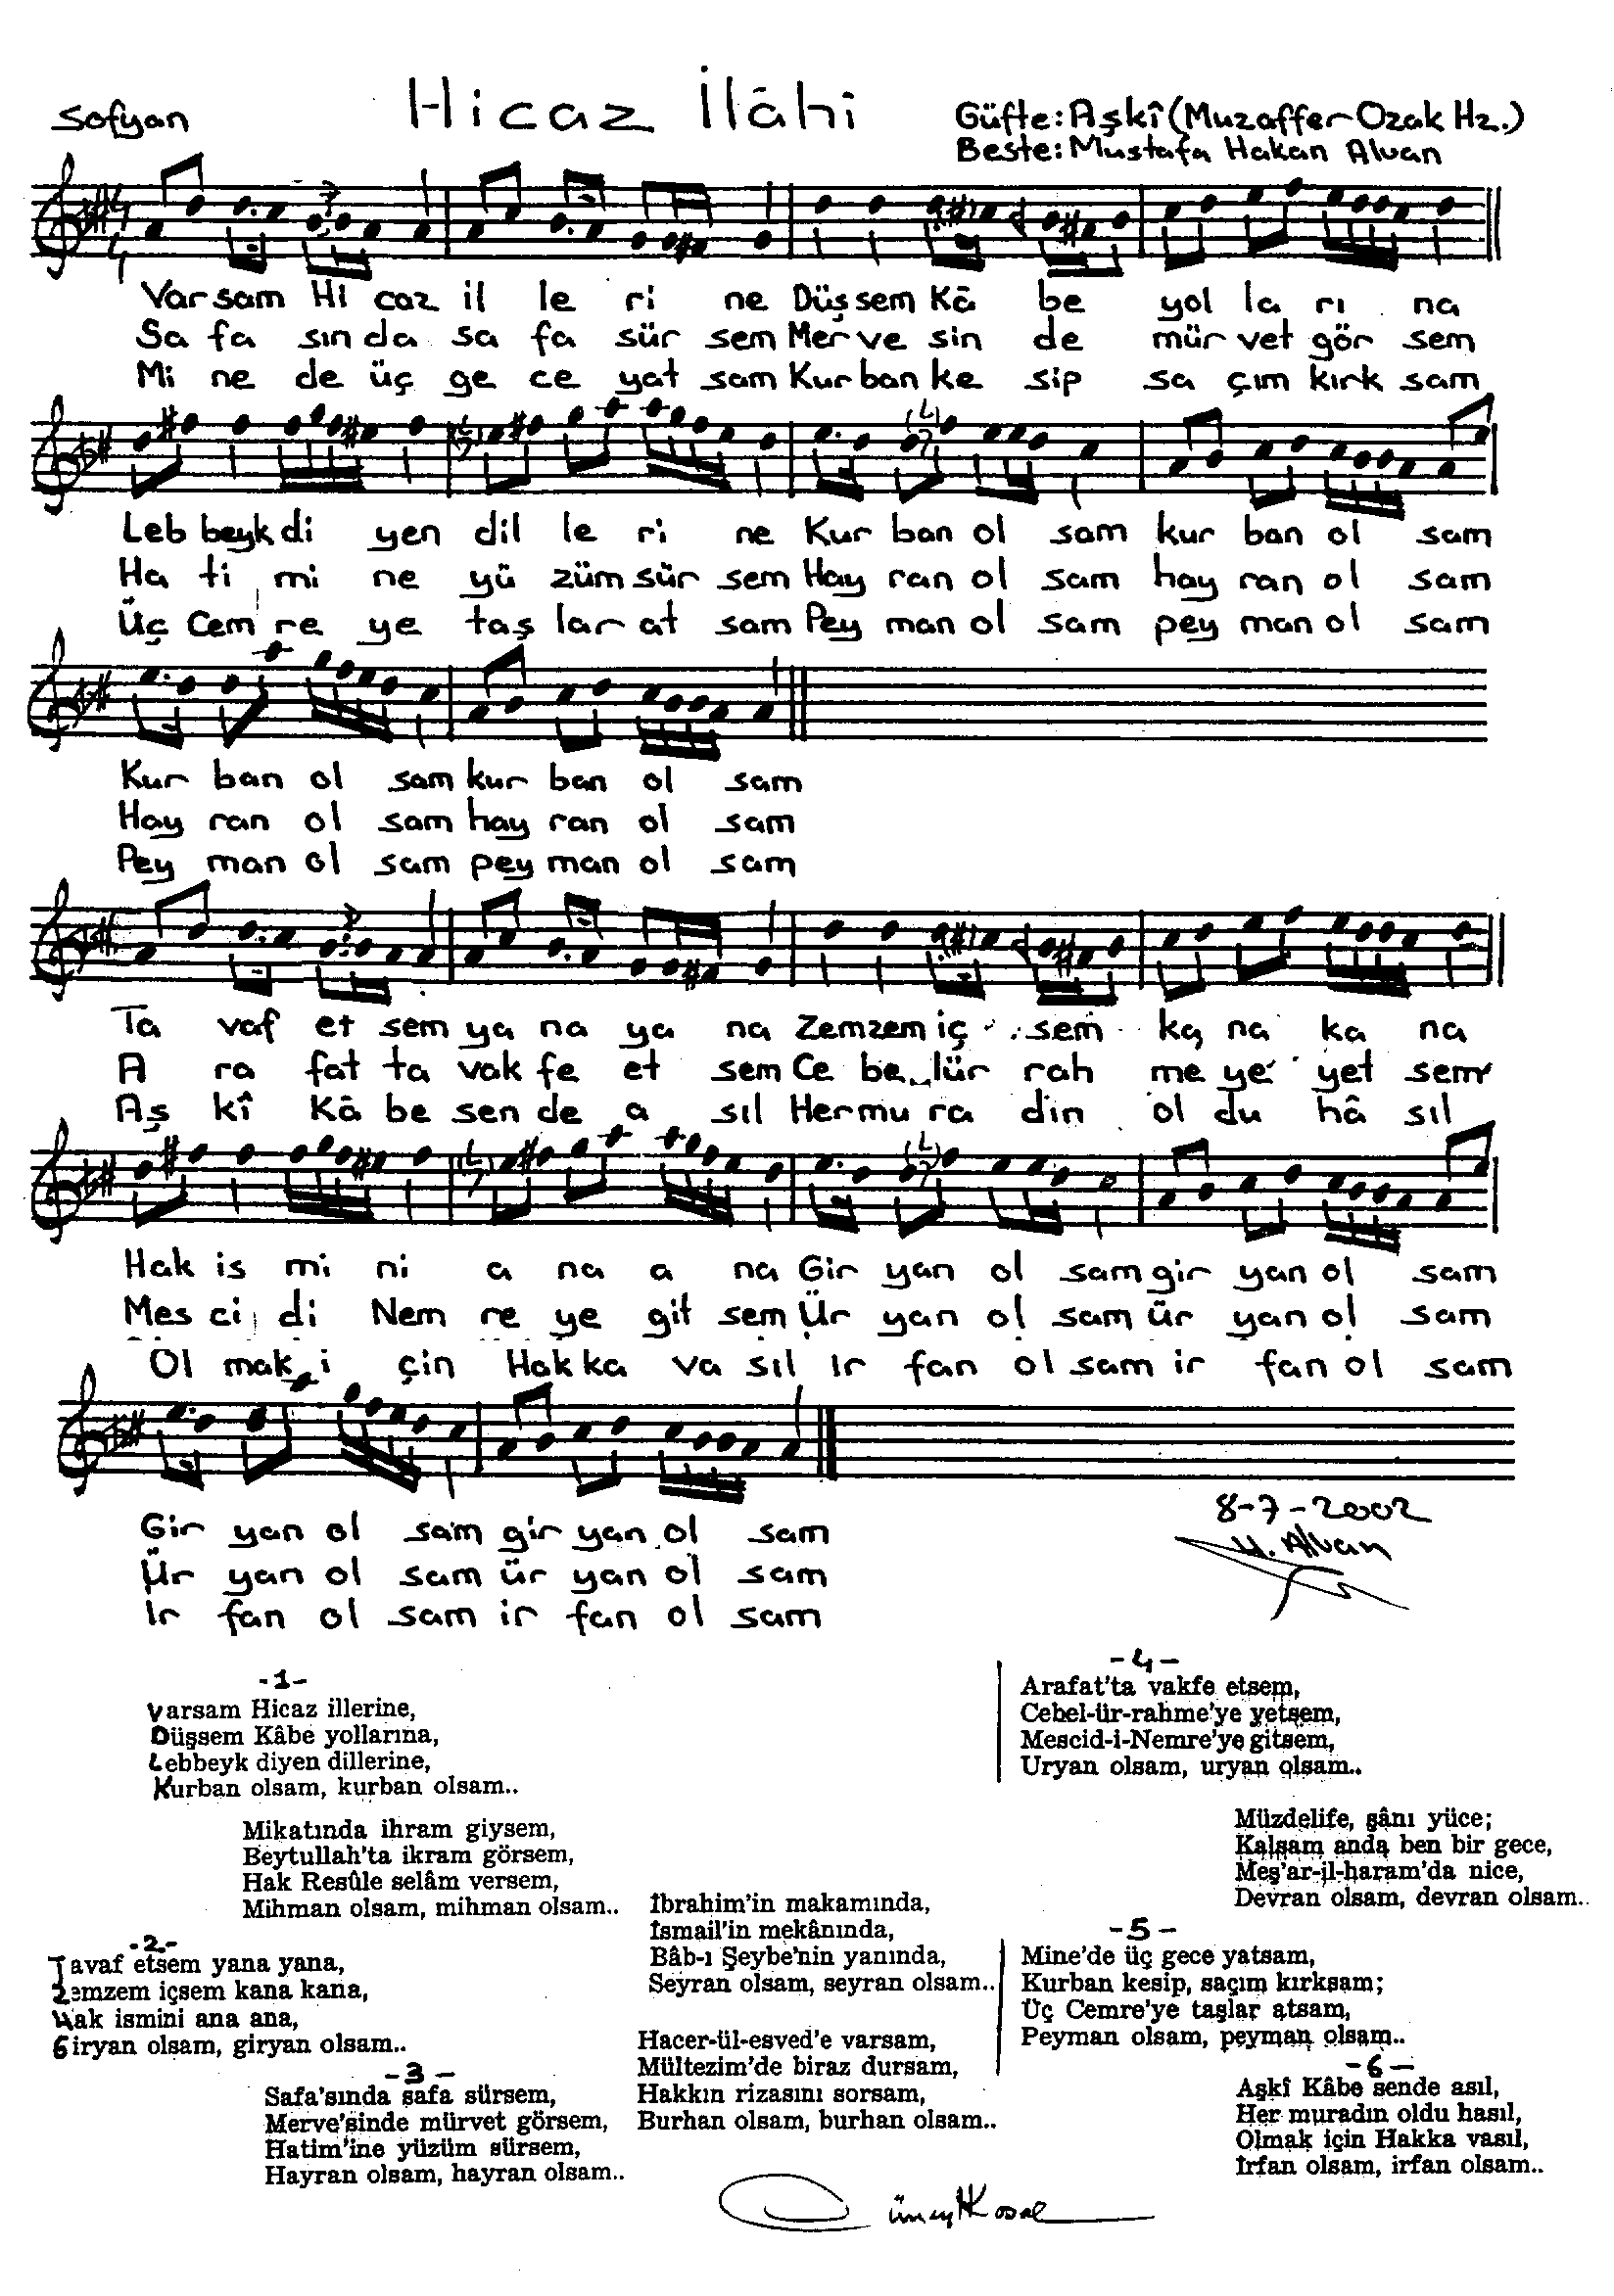 Hicaz İlâhî
Sofyan
Güfte: Aşkî (Muzaffer Ozak Hz.)
Beste: Mustafa Hakan Alvan
Varsam Hi caz il le ri ne Düşsem Kâ be yol la rı na
Sa fa sın da sa fa sür sem Mer ve sin de mür vet gör sem
Mi ne de üç ge ce yat sam Kur ban ke sip sa çım kırk sam
Leb beyk di yen dil le ri ne Kur ban ol sam kur ban ol sam
Ha ti mi ne yü züm sür sem Hay ran ol sam hay ran ol sam
Üç Cem re ye taş lar at sam Pey man ol sam pey man ol sam
Kur ban ol sam kur ban ol sam
Hay ran ol sam hay ran ol sam
Pey man ol sam pey man ol sam
Ta vaf et sem ya na ya na Zemzem iç sem ka na ka na
A ra fat ta vak fe et sem Ce be lür rah me ye yet sem
Aş kî Kâ be sen de a sıl Her mu ra dın ol du hâ sıl
Hak is mi ni a na a na Gir yan ol sam gir yan ol sam
Mes ci di Nem re ye git sem Ür yan ol sam ür yan ol sam
Ol mak i çin Hak ka va sıl İr fan ol sam ir fan ol sam
Gir yan ol sam gir yan ol sam
Ür yan ol sam ür yan ol sam
İr fan ol sam ir fan ol sam
8-7-2002
H. Alvan
-1-
Varsam Hicaz illerine,
Düşsem Kâbe yollarına,
Lebbeyk diyen dillerine,
Kurban olsam, kurban olsam..
Mikatında ihram giysem,
Beytullah'ta ikram görsem,
Hak Resûle selâm versem,
Mihman olsam, mihman olsam..
-2-
Tavaf etsem yana yana,
Zemzem içsem kana kana,
Hak ismini ana ana,
Giryan olsam, giryan olsam..
-3-
Safa'sında safa sürsem,
Merve'sinde mürvet görsem,
Hatim'ine yüzüm sürsem,
Hayran olsam, hayran olsam..
İbrahim'in makamında,
İsmail'in mekânında,
Bâb-ı Şeybe'nin yanında,
Seyran olsam, seyran olsam..
Hacer-ül-esved'e varsam,
Mültezim'de biraz dursam,
Hakkın rizasını sorsam,
Burhan olsam, burhan olsam..
-4-
Arafat'ta vakfe etsem,
Cebel-ür-rahme'ye yetsem,
Mescid-i-Nemre'ye gitsem,
Uryan olsam, uryan olsam..
Müzdelife, şânı yüce;
Kalsam anda ben bir gece,
Meş'ar-il-haram'da nice,
Devran olsam, devran olsam..
-5-
Mine'de üç gece yatsam,
Kurban kesip, saçım kırksam;
Üç Cemre'ye taşlar atsam,
Peyman olsam, peyman olsam..
-6-
Aşkî Kâbe sende asıl,
Her muradın oldu hasıl,
Olmak için Hakka vasıl,
İrfan olsam, irfan olsam..
Cüneyt Kosal